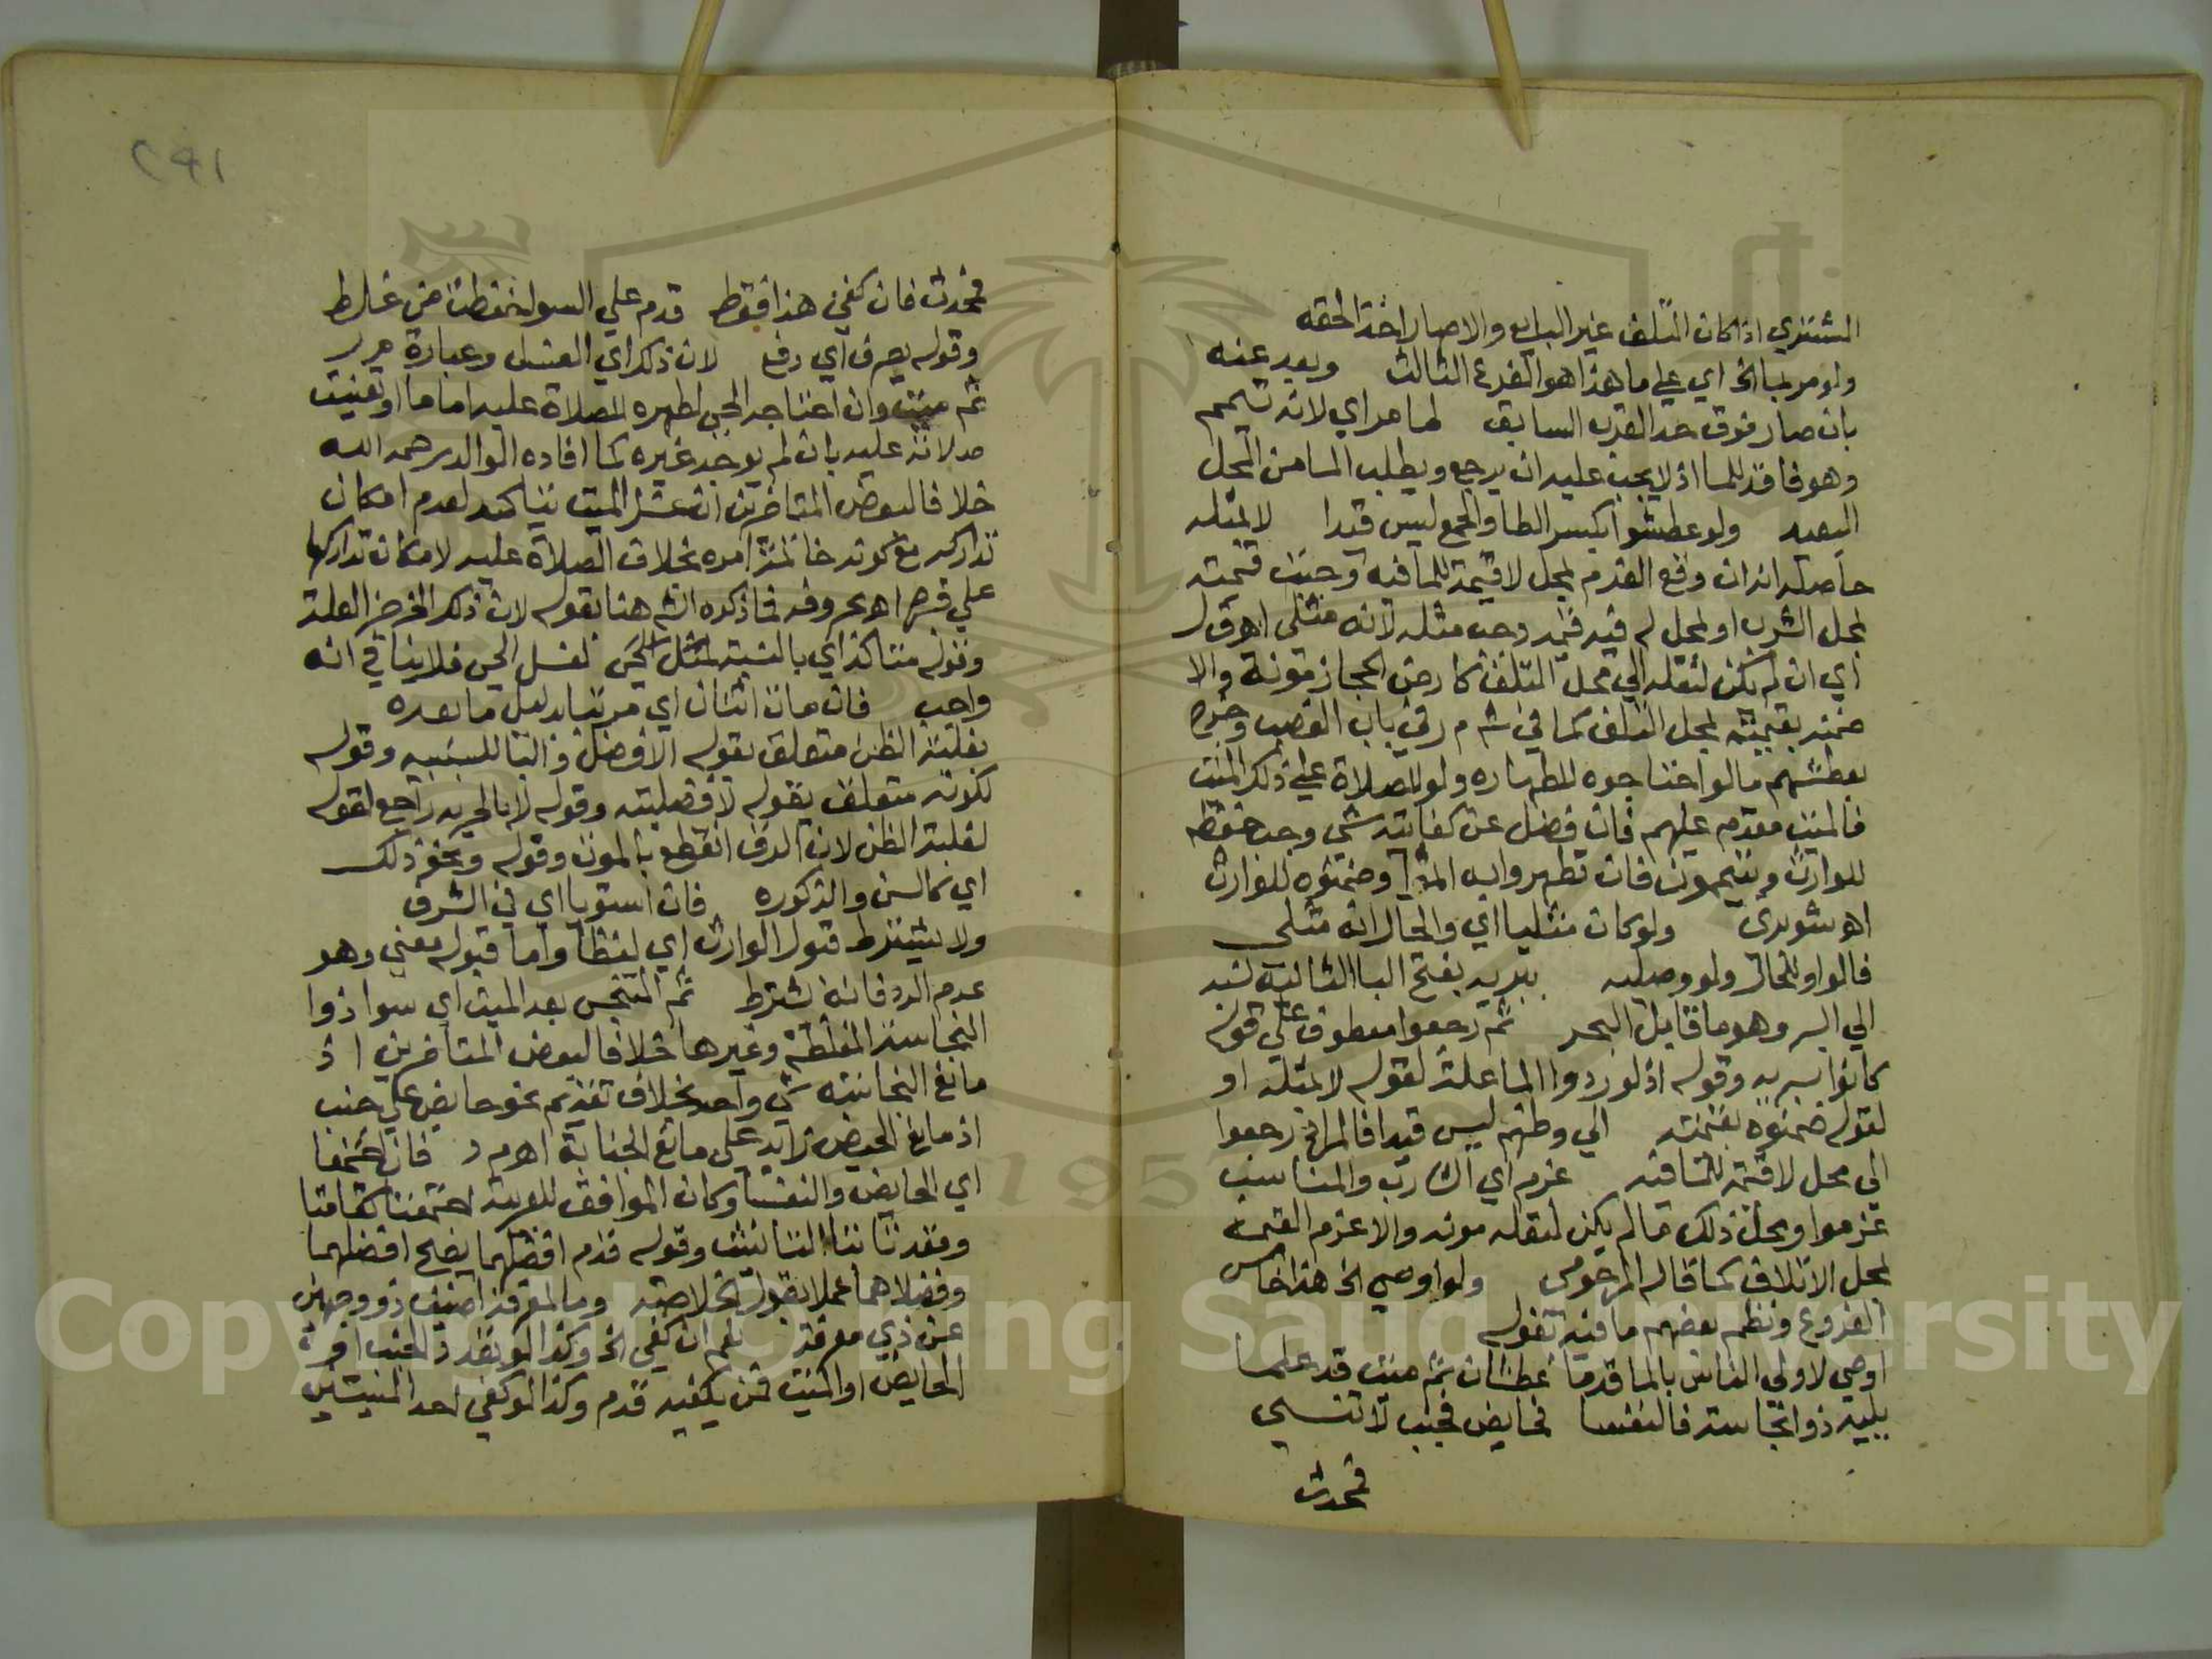 المشتري اذا كان المتلف غير البايع والا صار اخذا لحقه
ولو مر بما الخ اي علي ما هذا هو الفرع الثالث وبعد عنه
بان صار فوق حد القرب السابق لما مر اي لانه تيمم
وهو فاقد للما اذ لا يجب عليه ان يرجع ويطلب الما من المحل
البعيد ولو عطشوا بكسر الطا والجمع ليس قيدا لا بمثله
حاصله انه ان وقع الغرم بمحل لا قيمة للما فيه وجبت قيمته
بمحل الشرب او بمحل له فيه قيمة وجب مثله لانه مثلي اه ق ل
اي ان لم يكن لنقله الي محل التلف كارض الحجاز مونة والا
ضمنه بقيمته بمحل التلف كما في ش م ر في باب الغصب وخرج
بعطشهم ما لو احتاجوه للطهاره ولو للصلاة علي ذلك الميت
فالميت مقدم عليهم فان فضل عن كفايته شي وجب حفظه
للوارث ويتيممون فان تطهروا به اثموا وضمنوه للوارث
اه شوبري ولو كان مثليا اي والحال انه مثلي
فالواو للحال ولو وصليه ببريه بفتح البا الثانية نسبة
الي البر وهو ما قابل البحر ثم رجعوا معطوف علي قوله
كانوا ببريه وقوله اذ لو ردوا الما علة لقوله لا بمثله او
لقوله ضمنوه بقيمته الي وطنهم ليس قيدا فالمراد رجعوا
الي محل لا قيمة للما فيه غرم اي الشارب والمناسب
غرموا ومحل ذلك ما لم يكن لنقله مونه والا غرم القيمة
بمحل الاتلاف كما قاله المرحومي ولو اوصي الخ هذا خامس
الفروع ونظم بعضهم ما فيه بقوله
اوصي لاولي الناس بالما قدما عطشان ثم ميت قد علما
يليه ذو نجاسة فالنفسا فحايض فجنب لا تنسي
فمحدث
٢٩١
فمحدث فان كفي هذا فقط قدم علي السوا
وقوله يصرف اي رفع لان ذلك اي الغسل وعبارة م ر
ثم ميت وان احتاجه الحي لطهره للصلاة عليه اما ما او تعينت
صلاته عليه بان لم يوجد غيره كما افاده الوالد رحمه الله
خلافا لبعض المتاخرين ان غسل الميت يتاكد لعدم امكان
تداركه مع كونه خاتمة امره بخلاف الصلاة عليه لامكان تداركها
علي قبره اه بحروفه فما ذكره الش هنا بقوله لان ذلك الخ جزء العلة
وقوله متاكد اي بالنسبة لغسل الحي فلا ينافي انه
واجب فان مات اثنان اي مرتبا بدليل ما بعده
بغلبة الظن متعلق بقوله الافضل والبا للسببيه وقوله
لكونه متعلق بقوله لافضليته وقوله لا بالحريه راجع لقوله
لغلبة الظن لان الرق انقطع بالموت وقوله ونحو ذلك
اي كالسن والذكوره فان استويا اي في الشرف
ولا يشترط قبول الوارث اي لفظا واما قبوله معني وهو
عدم الرد فانه يشترط ثم المتنجس بعد الميت اي سوا ذوا
النجاسة المغلظة وغيرها خلافا لبعض المتاخرين اذ
مانع النجاسة شي واحد بخلاف تقديم نحو حايض علي جنب
اذ مانع الحيض زايد علي مانع الجنابة اه م ر فان اجتمعا
اي الحايض والنفسا وكان الموافق للعربية اجتمعتا كقامتا
وقعدتا بتا التانيث وقوله قدم افضلهما يصح افضلهما
وفضلاهما عملا بقول الخلاصة وما لمعرفة اضيف ذو وجهين
عن ذي معرفة نعم ان كفي الخ وكذا لو
الحايض او الميت فمن يكفيه قدم وكذا لو كفي احد الميتين